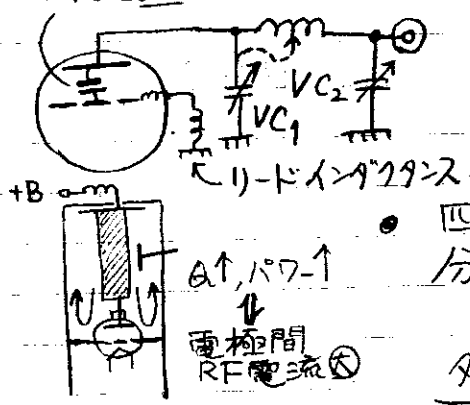 VC₁
VC₂
リードインダクタンス
+B
Q↑,パワー↑
⇓
電極間
RF電流㊅